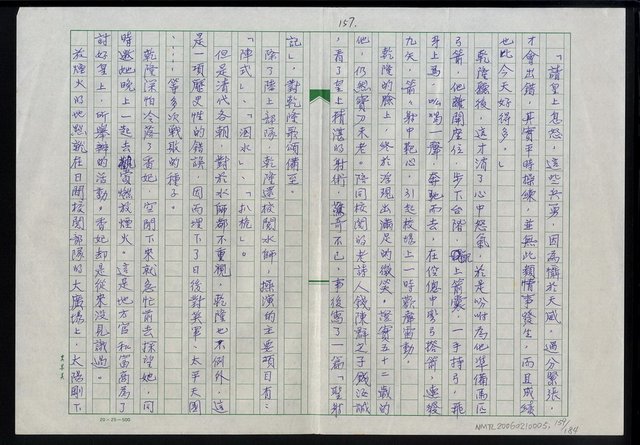 157.
「請皇上息怒，這些兵勇，因為懾於天威，過分緊張，
才會出錯，其實平時操練，並無此類情事發生，而且成績
也比今天好得多。」
乾隆聽後，這才消了心中怒氣，於是吩咐為他準備馬匹
弓箭，他離開座位，步下台階，配上箭囊，一手持弓，飛
身上馬，吆喝一聲，奔馳而去，在位徳中彎弓搭箭，連發
九矢，箭箭射中靶心，引起校場上一時歡聲雷動。
乾隆的臉上，終於浮現出滿足的微笑。證實五十二歲的
他，仍然寶刀未老。陪同校閱的老詩人錢陳群之子錢汝誠
，看了皇上精湛的射術，驚奇不已，事後寫了一篇「聖射
記」，對乾隆歌頌備至。
除了陸上部隊，乾隆還校閱水師，操演的主要項目有：
「陣式」、「泅水」、「扒桅」。
但是清代各朝，對於水師都不重視，乾隆也不例外，這
是一項歷史性的錯誤，因而埋下了日後對英軍、太平天國
……等多次戰敗的種子。
乾隆深怕冷落了香妃，空閒下來就急忙前去探望她，同
時邀她晚上一起去觀賞燃放煙火。這是地方官和富商為了
討好皇上，所舉辦的活動。香妃卻是從來沒見識過。
放煙火的地點就在日間校閱部隊的大廣場上，太陽剛下
20×25=500
NMTL20050210005, 159/184